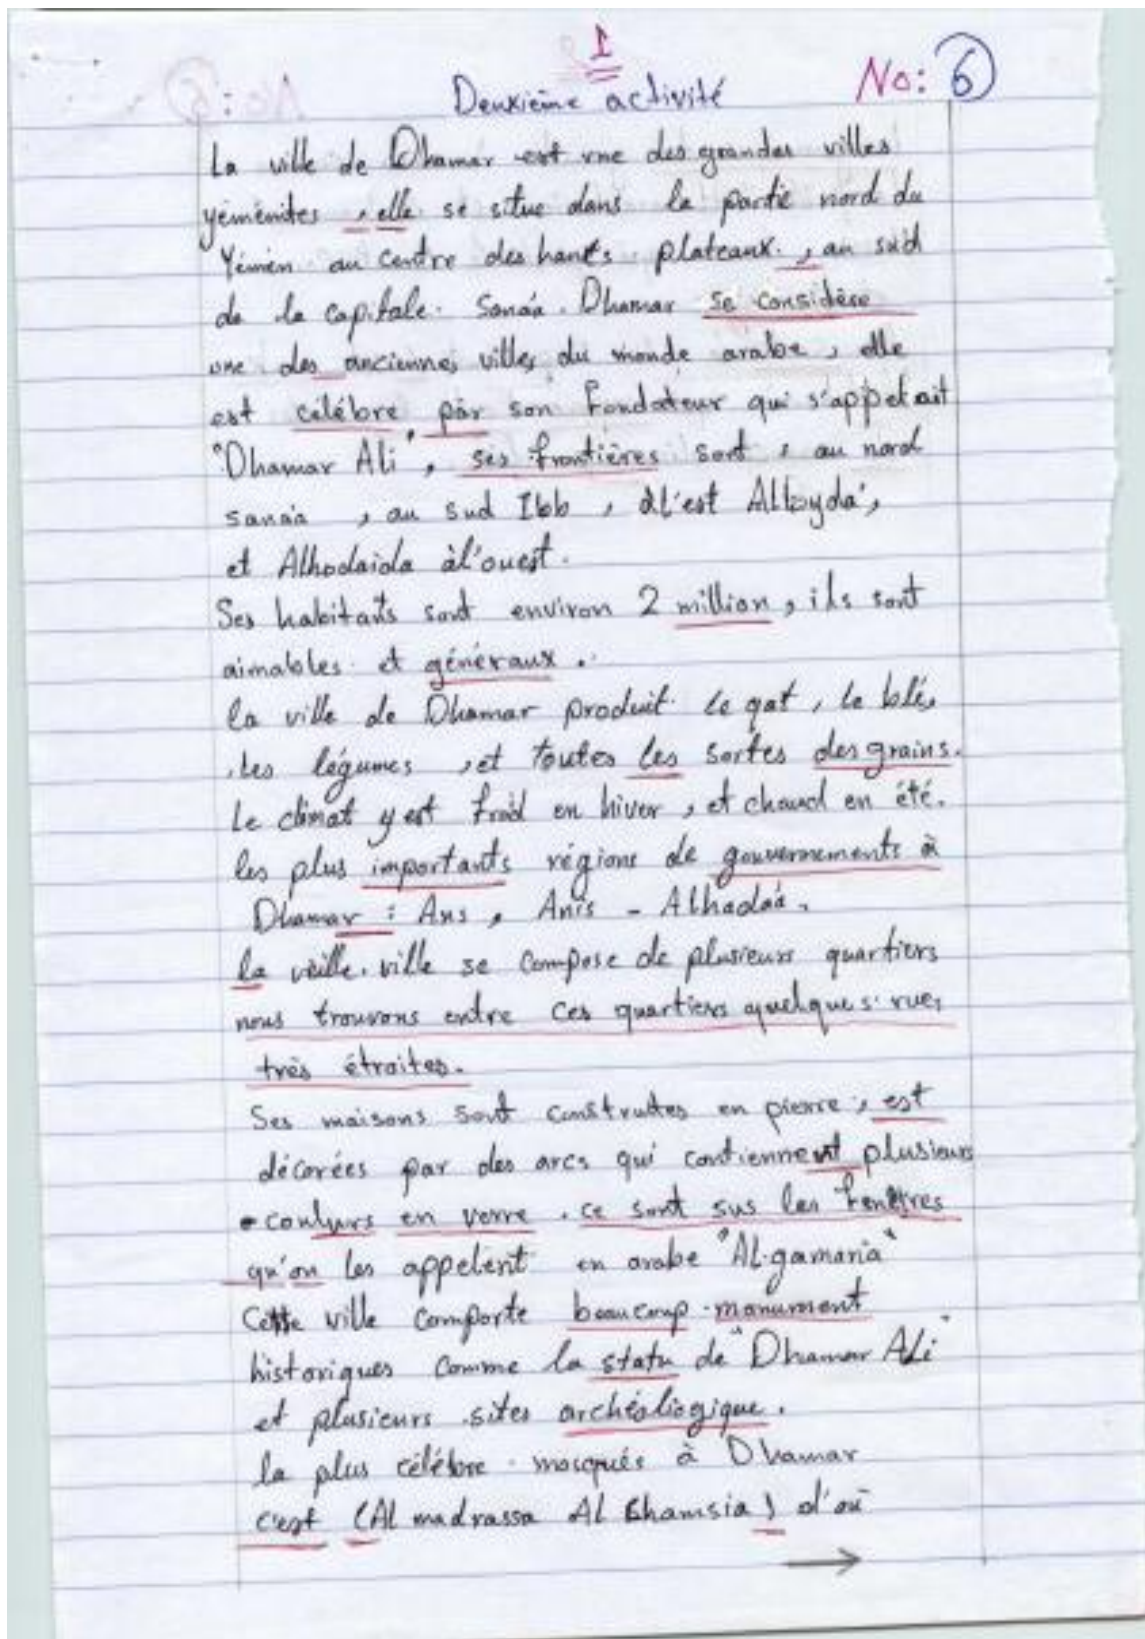 1
No: 6
Deuxième activité
La ville de Dhamar est une des grandes villes
yéménites, elle se situe dans la partie nord du
Yémen au centre des hauts plateaux, au sud
de la capitale Sanáa. Dhamar se considère
une des anciennes villes du monde arabe, elle
est célébre par son Fondateur qui s'appelait
"Dhamar Ali", ses frontières sont, au nord
sanáa, au sud Ibb, à l'est Albayda',
et Alhodaida à l'ouest.
Ses habitants sont environ 2 million, ils sont
aimables et généraux.
la ville de Dhamar produit le qat, le blés,
les légumes, et toutes les sortes des grains.
Le climat y est froid en hiver, et chaud en été.
les plus importants régions de gouvernements à
Dhamar : Ans, Anis - Alhadáa.
la vieille ville se compose de plusieurs quartiers
nous trouvons entre ces quartiers quelques rues
très étroites.
Ses maisons sont construites en pierre, est
décorées par des arcs qui contiennent plusieurs
coulurs en verre. ce sont sus les fenêtres
qu'on les appelent en arabe "Al-gamaria"
Cette ville comporte beaucoup monument
historiques comme la statu de "Dhamar Ali"
et plusieurs sites archéoliogique.
la plus célébre mosqués à Dhamar
c'est (Al madrassa Al Shamsia) d'où